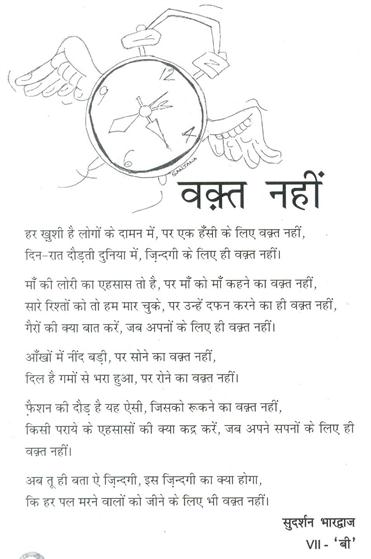 12
3
4
6
9
SANJANA
वक़्त नहीं
हर खुशी है लोगों के दामन में, पर एक हँसी के लिए वक़्त नहीं,
दिन-रात दौड़ती दुनिया में, ज़िन्दगी के लिए ही वक़्त नहीं।
माँ की लोरी का एहसास तो है, पर माँ को माँ कहने का वक़्त नहीं,
सारे रिश्तों को तो हम मार चुके, पर उन्हें दफन करने का ही वक़्त नहीं,
गैरों की क्या बात करें, जब अपनों के लिए ही वक़्त नहीं।
आँखों में नींद बड़ी, पर सोने का वक़्त नहीं,
दिल है गमों से भरा हुआ, पर रोने का वक़्त नहीं।
फ़ैशन की दौड़ है यह ऐसी, जिसको रूकने का वक़्त नहीं,
किसी पराये के एहसासों की क्या कद्र करें, जब अपने सपनों के लिए ही
वक़्त नहीं।
अब तू ही बता ऐ ज़िन्दगी, इस ज़िन्दगी का क्या होगा,
कि हर पल मरने वालों को जीने के लिए भी वक़्त नहीं।
सुदर्शन भारद्वाज
VII - 'बी'